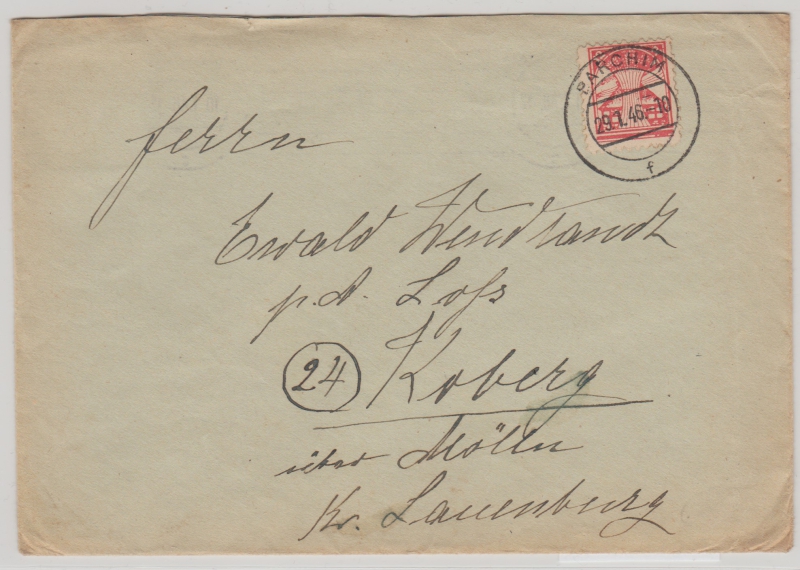 PARCHIM
29.1.46-10
f
Herrn
Ewald Wendlandt
p.A. Loss
24 Koberg
über Mölln
Kr. Lauenburg